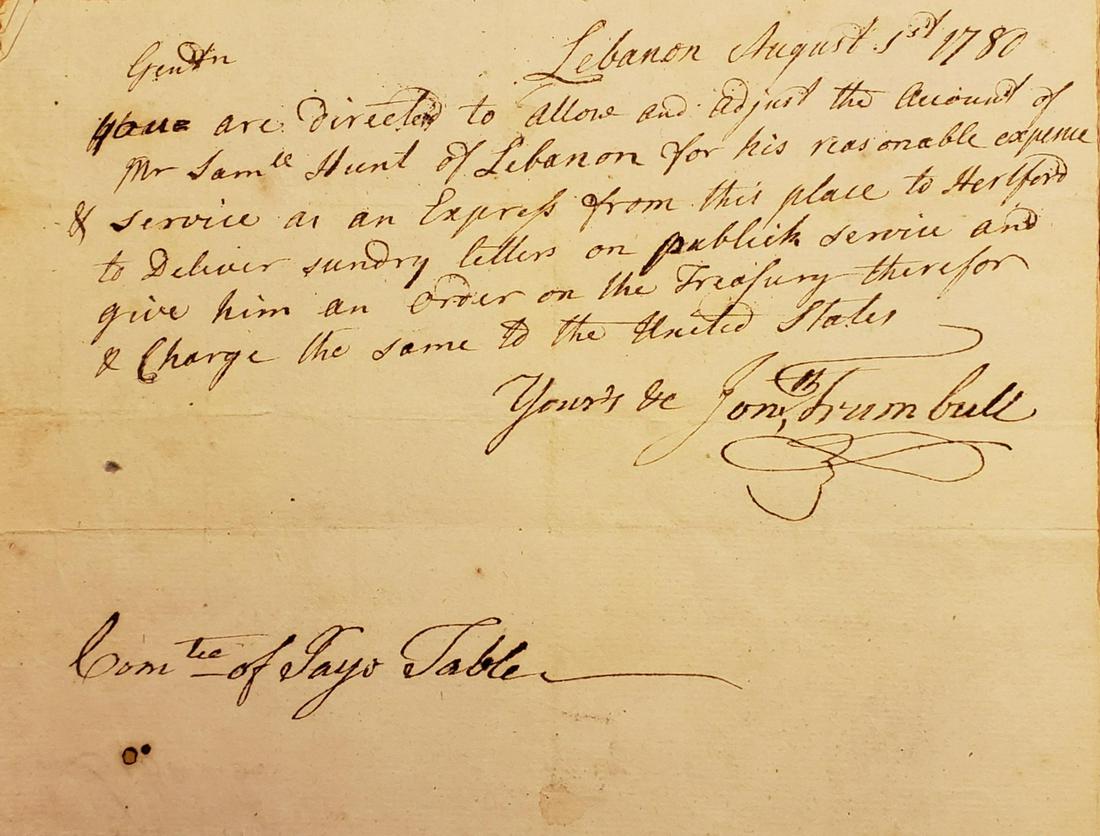 Lebanon August 1st 1780
Gentn
You are directed to allow and adjust the Account of
Mr Samll Hunt of Lebanon for his reasonable expense
& service as an Express from this place to Hertford
to Deliver sundry letters on publick service and
give him an order on the Treasury therefor
& Charge the same to the United States
Yours &c Jonth Trumbull
Comtee of Pays Table